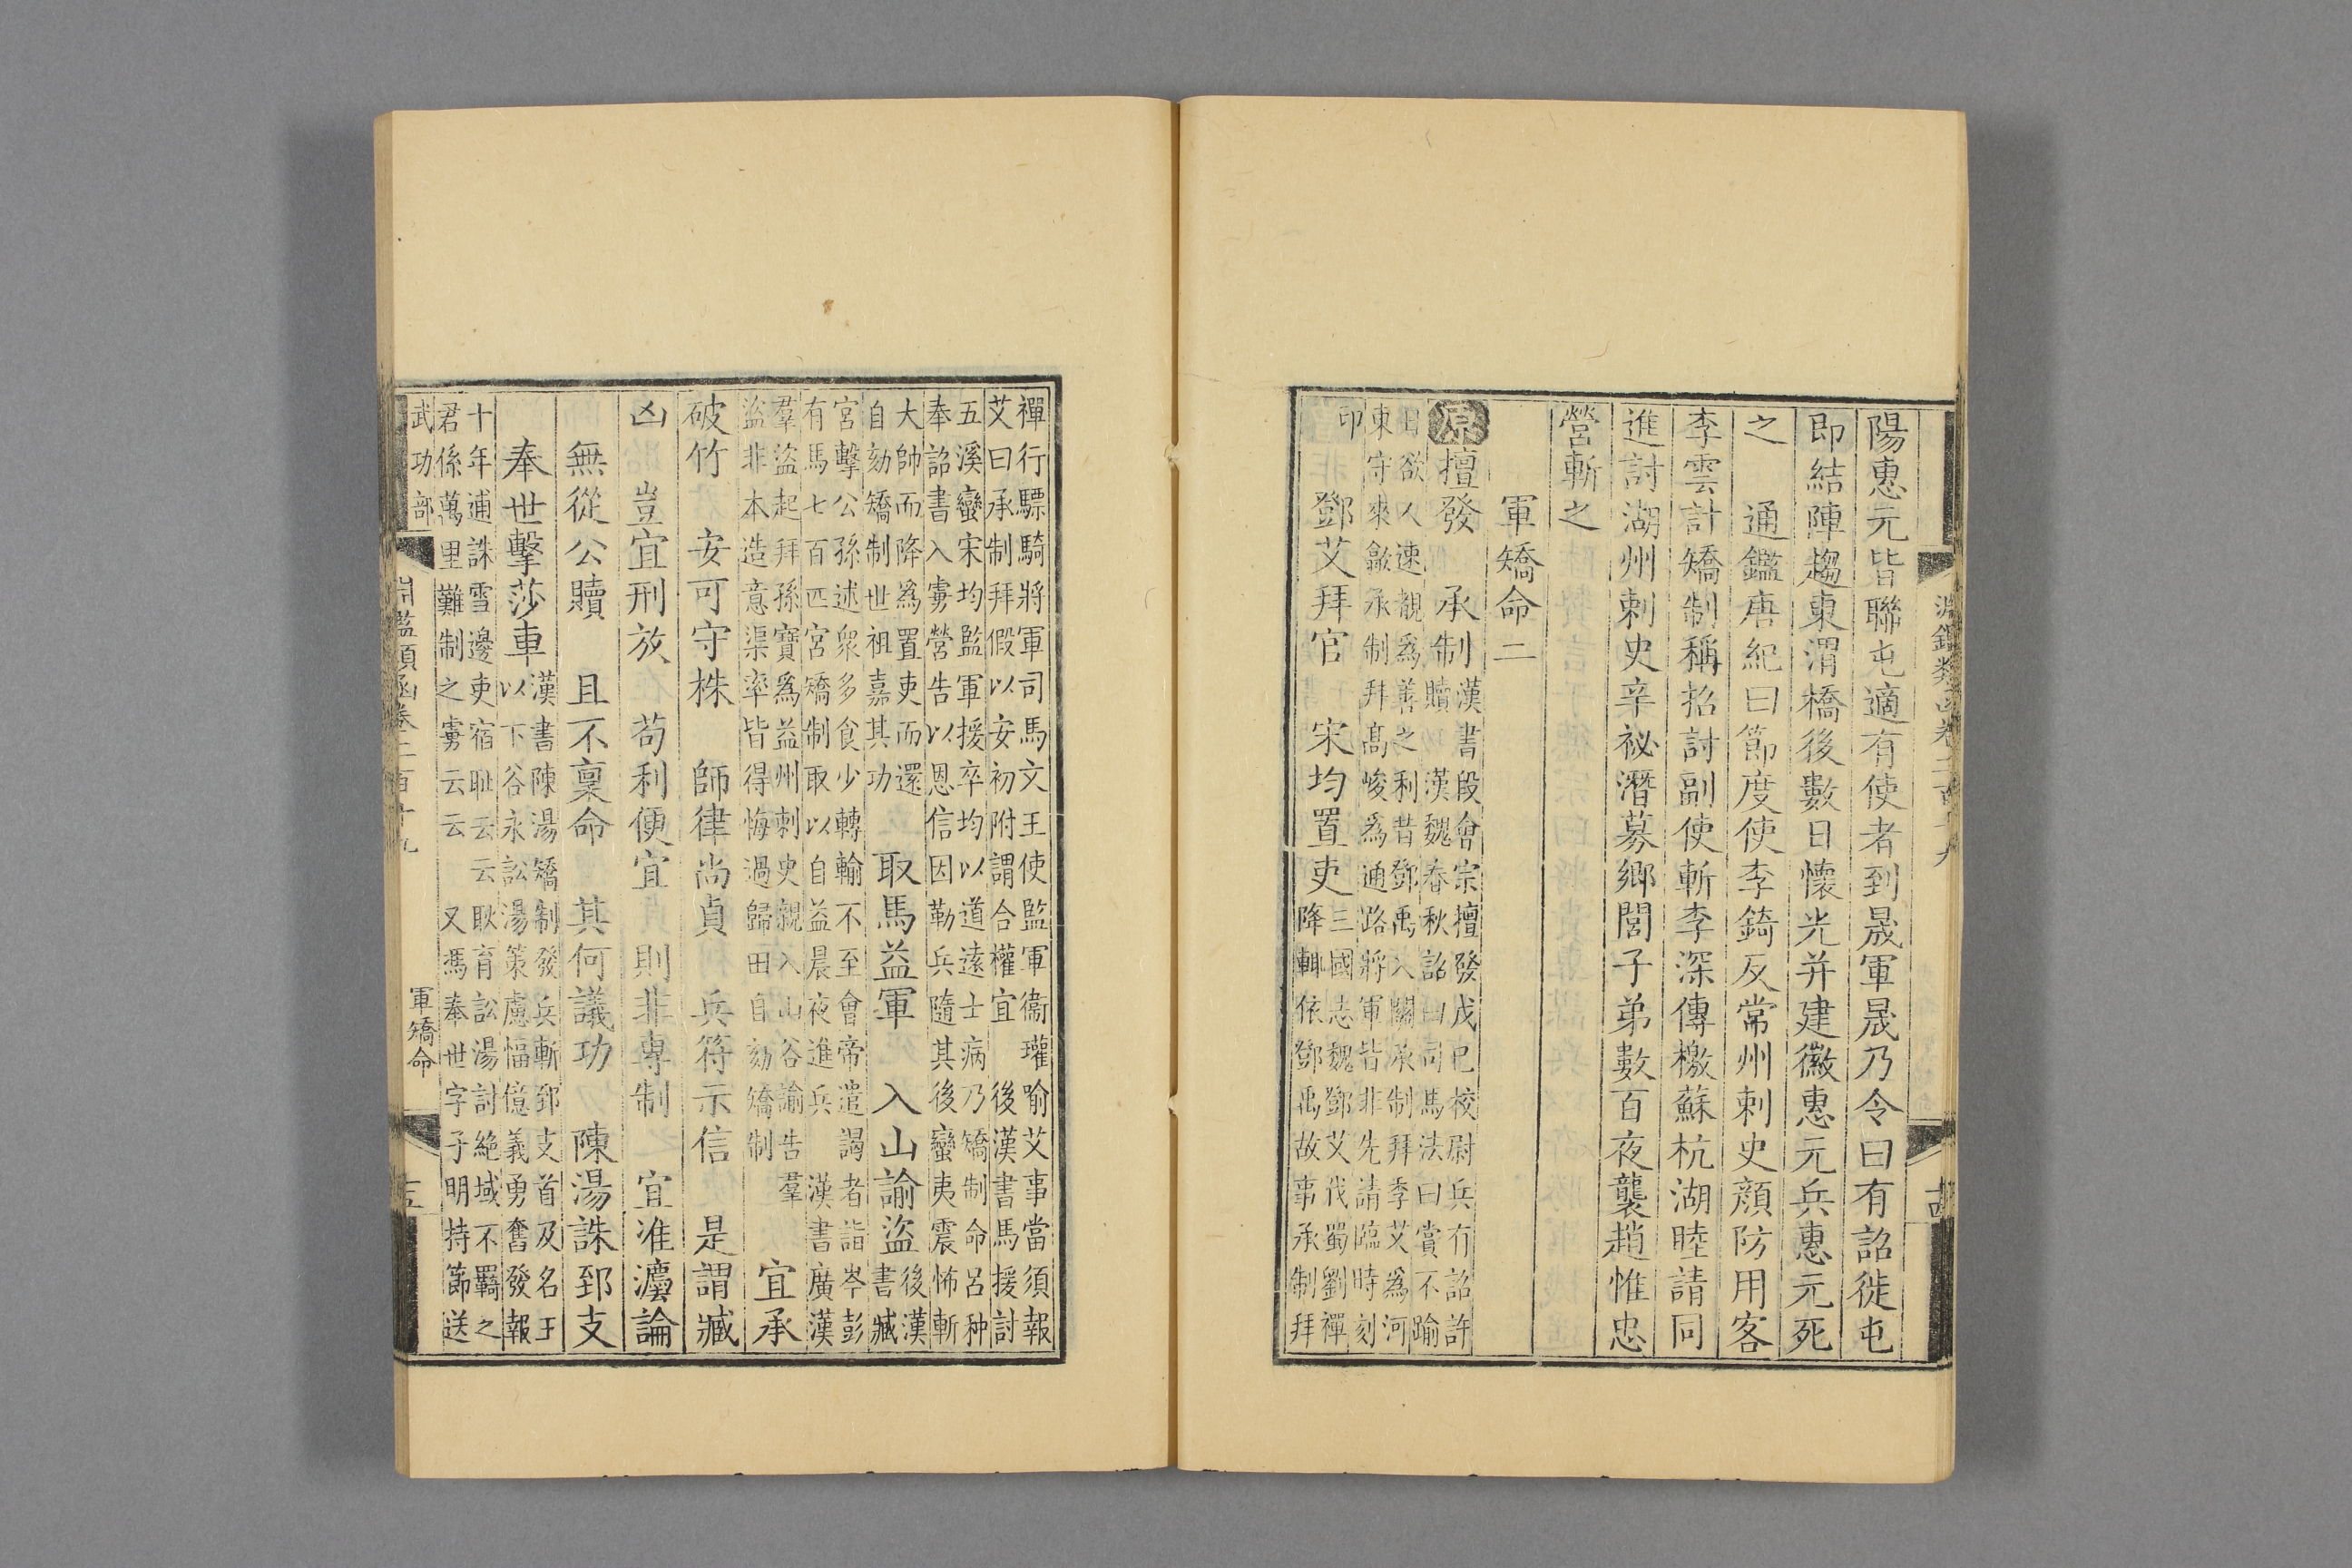 淵鑑類函卷二百十九
陽惠元皆聯屯適有使者到晟軍晟乃令曰有詔徙屯
即結陣趨東渭橋後數日懷光并建徽惠元兵惠元死
之　通鑑唐紀曰節度使李錡反常州刺史顏防用客
李雲計矯制稱招討副使斬李深傳檄蘇杭湖睦請同
進討湖州刺史辛祕潛募鄉閭子弟數百夜襲趙惟忠
營斬之
軍矯命二
原擅發　承制
漢書段會宗擅發戊已校尉兵有詔許
贖　漢魏春秋詔曰司馬法曰賞不踰
日欲人速覩爲善之利昔鄧禹入關承制拜李艾爲河
東守來歙承制拜高峻爲通路將軍皆非先請臨時刻
印
鄧艾拜官　宋均置吏
三國志魏鄧艾伐蜀劉禪
降輒依鄧禹故事承制拜
禪行驃騎將軍司馬文王使監軍衞瓘喻艾事當須報
艾曰承制拜假以安初附謂合權宜　後漢書馬援討
五溪蠻宋均監軍援卒均以道遠士病乃矯制命呂种
奉詔書入虜營告以恩信因勒兵隨其後蠻夷震怖斬
大帥而降爲置吏而還
自劾矯制世祖嘉其功
取馬益軍　入山諭盜
後漢
書臧
宮擊公孫述衆多食少轉輸不至會帝遣謁者詣岑彭
有馬七百匹宮矯制取以自益晨夜進兵　漢書廣漢
羣盜起拜孫寶爲益州刺史親入山谷諭告羣
盜非本造意渠率皆得悔過歸田自劾矯制
宜承
破竹　安可守株　師律尚貞　兵符示信　是謂臧
凶　豈宜刑放　苟利便宜　則非專制　宜准瀍論
無從公贖　且不稟命　其何議功　陳湯誅郅支
奉世擊莎車
漢書陳湯矯制發兵斬郅支首及名王
以下谷永訟湯策慮愊億義勇奮發報
十年逋誅雪邊吏宿耻云云耿育訟湯討絶域不羈之
君係萬里難制之虜云云　又馮奉世字子明持節送
武功部
淵鑑類函卷二百十九
軍矯命